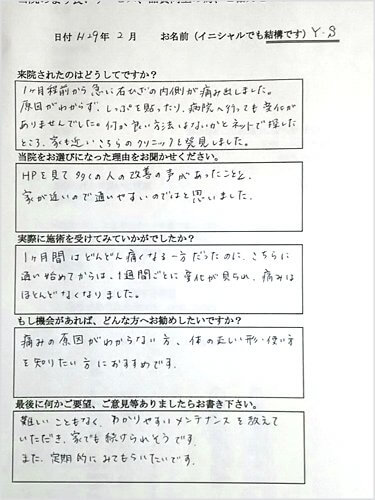 日付 H29年 2月 お名前（イニシャルでも結構です） Y.S
来院されたのはどうしてですか？
1ヶ月程前から急に右ひざの内側が痛み出しました。
原因がわからず、しっぷを貼ったり、病院へ行っても変化が
ありませんでした。何か良い方法はないかとネットで探した
ところ、家も近いこちらのクリニックを発見しました。
当院をお選びになった理由をお聞かせください。
HPを見て多くの人の改善の声があったことと、
家が近いので通いやすいのではと思いました。
実際に施術を受けてみていかがでしたか？
1ヶ月間はどんどん痛くなる一方だったのに、こちらに
通い始めてからは、1週間ごとに変化が見られ、痛みは
ほとんどなくなりました。
もし機会があれば、どんな方へお勧めしたいですか？
痛みの原因がわからない方、体の正しい形・使い方
を知りたい方におすすめです。
最後に何かご要望、ご意見等ありましたらお書き下さい。
難しいこともなく、わかりやすいメンテナンスを教えて
いただき、家でも続けられそうです。
また、定期的にみてもらいたいです。